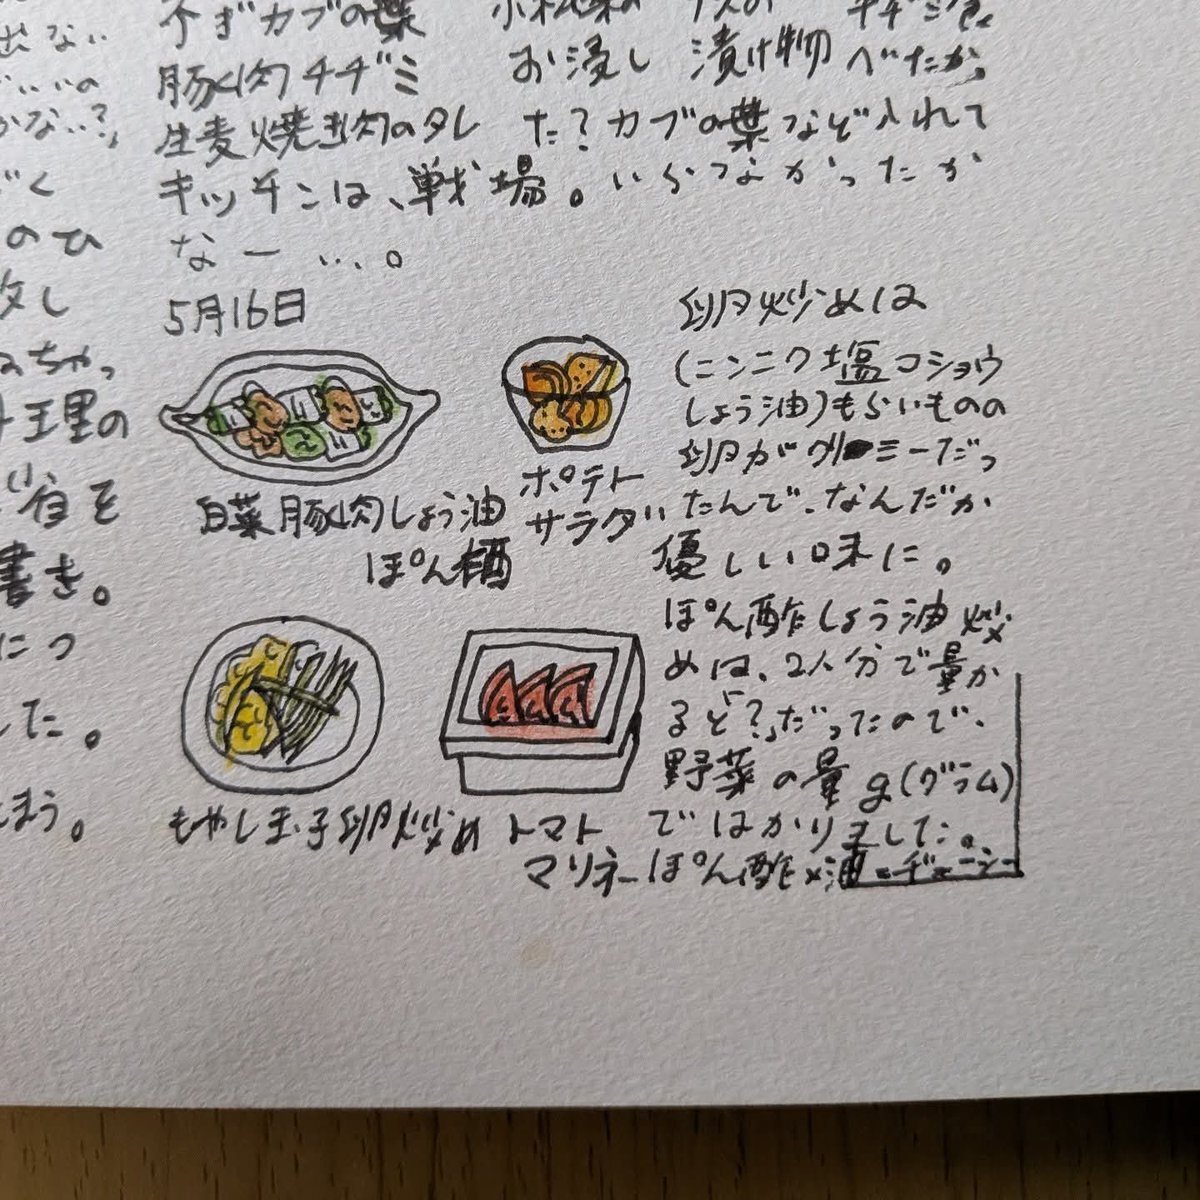 出ない
かない?」
のひ
ちゃっ
理の
省を
書き。
につ
した。
まう。
ネギカブの葉
豚肉チヂミ
生麦焼き肉のタレ
キッチンは、戦場。いらなかったか
なー…。
小松菜の
お浸し 漬け物
チヂミ食
べたか
た?カブの葉など入れて
5月16日
白菜豚肉しょう油
ぽん酢
ポテト
サラダ
もやし玉子卵炒め
トマト
マリネ
卵炒めは
(ニンニク塩コショウ
しょう油)もらいものの
卵がクリーミーだっ
たんで、なんだか
優しい味に。
ぽん酢しょう油炒
めは、2人分で量か
るど?」だったので、
野菜の量g(グラム)
ではかりました。
ぽん酢×油